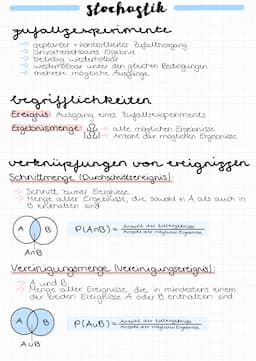 stochastik
zufallsexperimente
→ geplanter + kontrollierter Zufallsvorgang
→ unvorhersehbares Ergebnis
→ beliebig wiederholbar
→ wiederholbar unter den gleichen Bedingungen
→ mehrere mögliche Ausgänge
begrifflichkeiten
Ereignis: Ausgang eines Zufallsexperiments
Ergebnismenge
→ alle möglichen Ergebnisse
→ Anzahl der möglichen Ergebnisse
verknüpfungen von ereignissen
Schnittmenge (Durchschnittsereignis):
→ Schnitt zweier Ereignisse
→ Menge aller Ergebnisse, die sowohl in A als auch in
B enthalten sind
A B
P(A∩B) =
A∩B
Vereinigungsmenge (Vereinigungsereignis):
→ A und B
→ Menge aller Ereignisse, die in mindestens einem
der beiden Ereignisse A oder B enthalten sind
A B
P(A∪B) =
A∪B